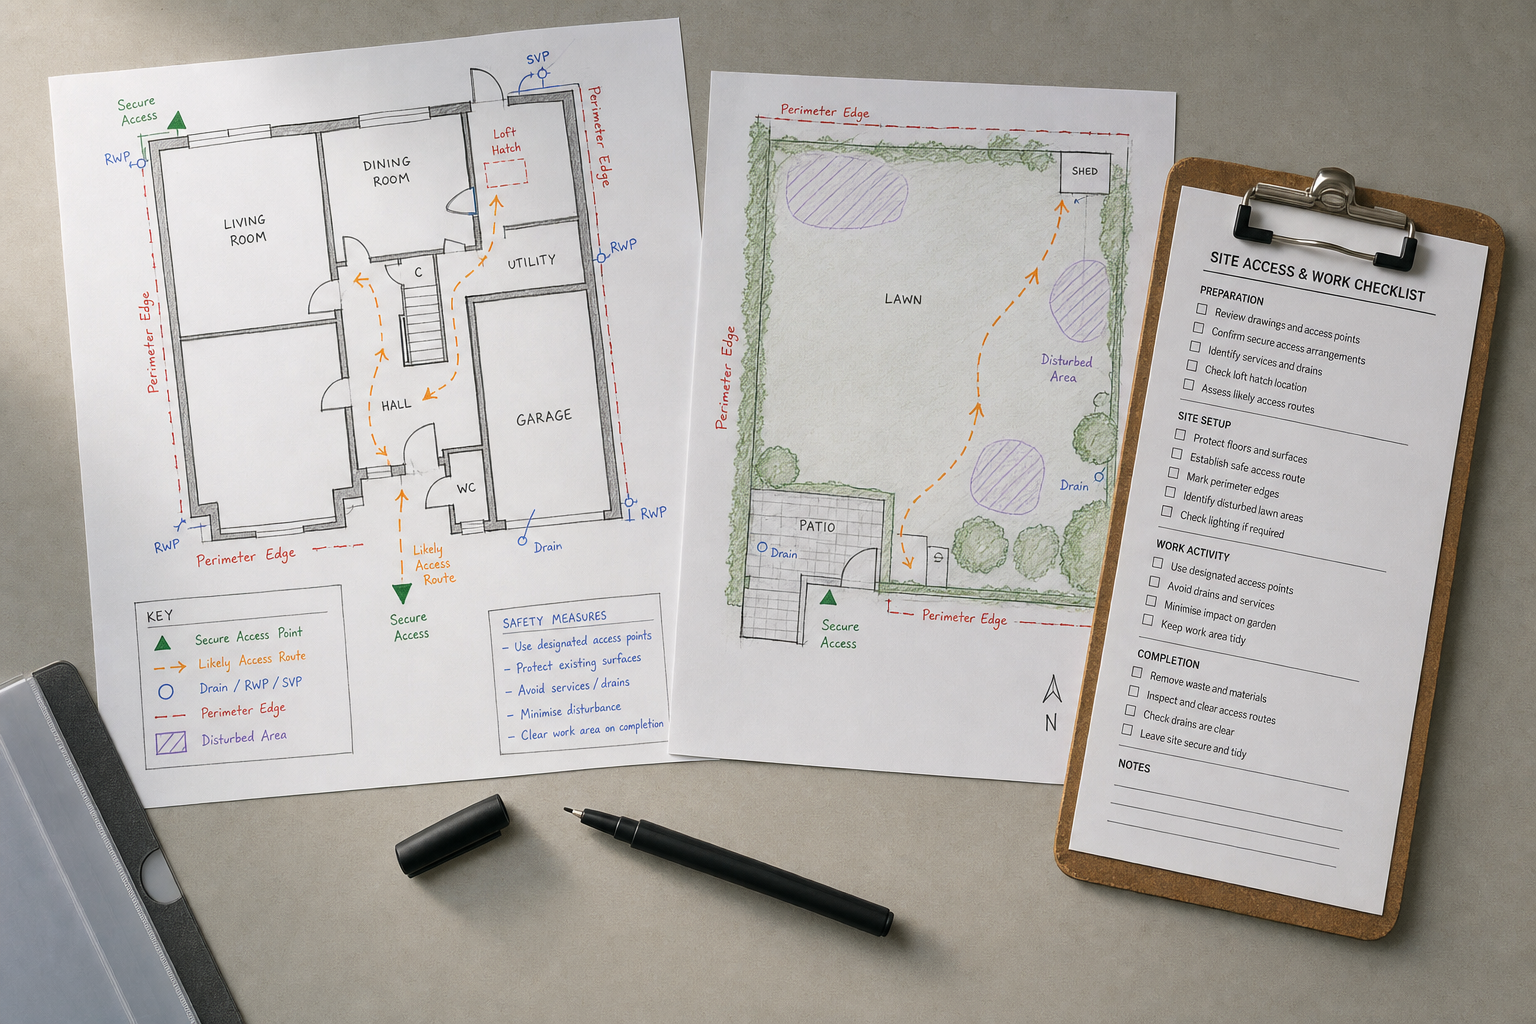 SVP
Secure
Access
RWP
Perimeter Edge
Loft
Hatch
DINING
ROOM
LIVING
ROOM
C
UTILITY
RWP
Perimeter Edge
HALL
GARAGE
WC
RWP
RWP
Perimeter Edge
Drain
Likely
Access
Route
Secure
Access
KEY
Secure Access Point
Likely Access Route
Drain / RWP / SVP
Perimeter Edge
Disturbed Area
SAFETY MEASURES
– Use designated access points
– Protect existing surfaces
– Avoid services / drains
– Minimise disturbance
– Clear work area on completion
Perimeter Edge
SHED
LAWN
Perimeter Edge
Disturbed
Area
Drain
PATIO
Drain
Secure
Access
Perimeter Edge
N
SITE ACCESS & WORK CHECKLIST
PREPARATION
Review drawings and access points
Confirm secure access arrangements
Identify services and drains
Check loft hatch location
Assess likely access routes
SITE SETUP
Protect floors and surfaces
Establish safe access route
Mark perimeter edges
Identify disturbed lawn areas
Check lighting if required
WORK ACTIVITY
Use designated access points
Avoid drains and services
Minimise impact on garden
Keep work area tidy
COMPLETION
Remove waste and materials
Inspect and clear access routes
Check drains are clear
Leave site secure and tidy
NOTES